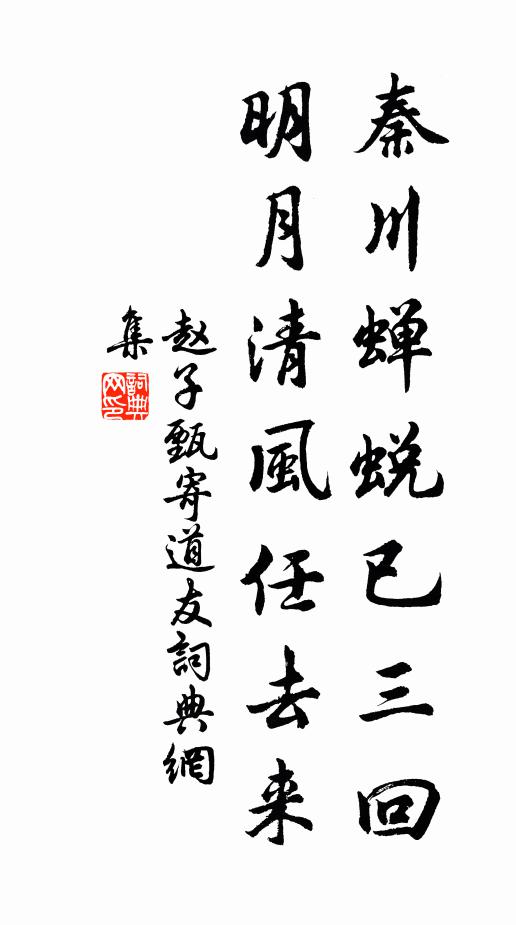 秦川蝉蜕已三回
明月清風任去来
赵子甄寄道友詞典網
集
詞典
网印